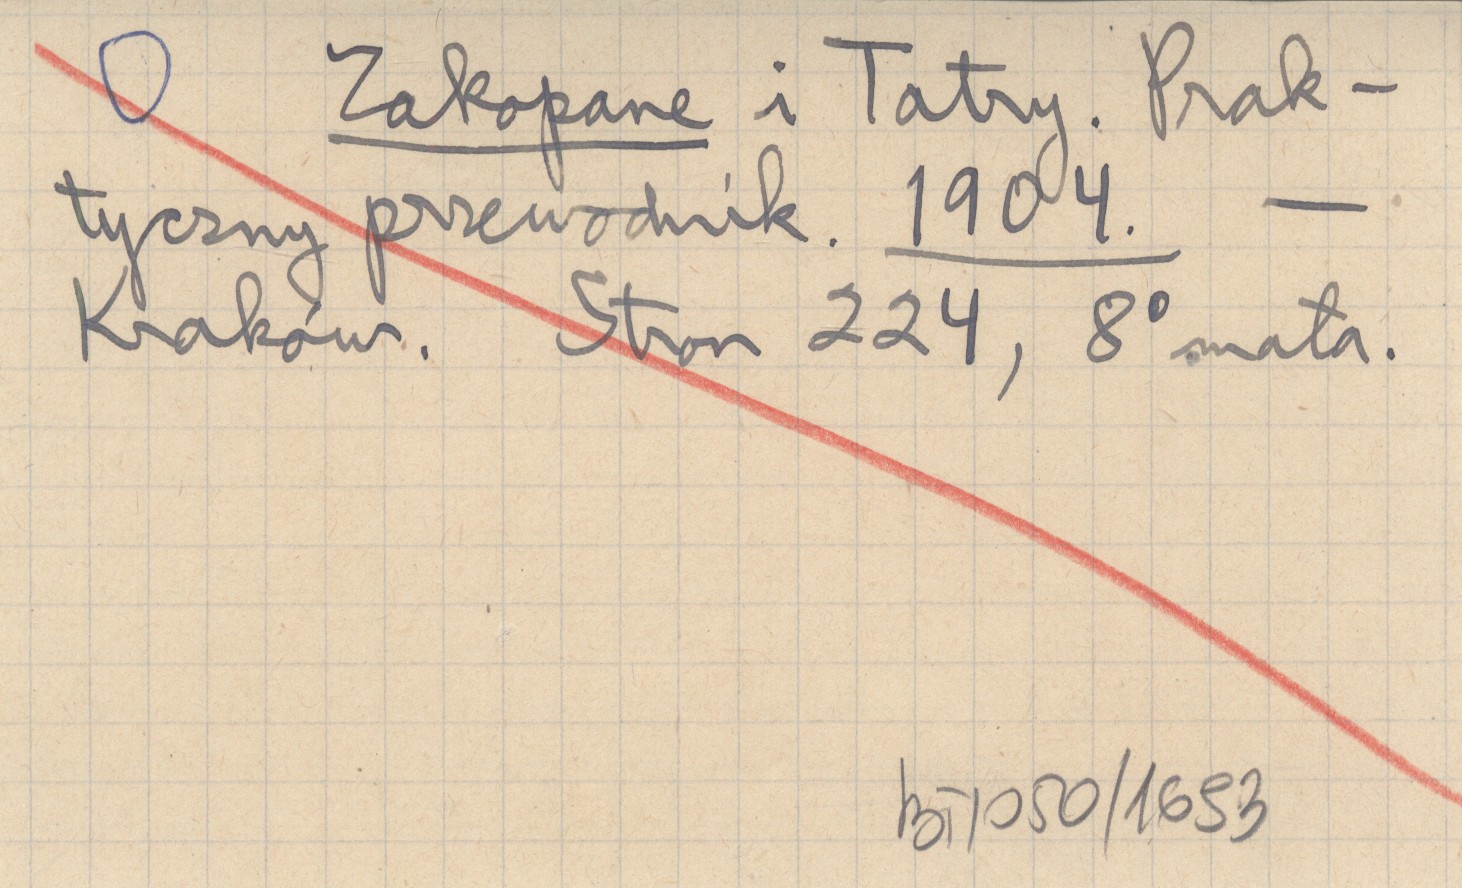 Zakopane i Tatry. Prak-
tyczny przewodnik. 1904. —
Kraków. Stron 224, 8° mała.
BT/050/1693